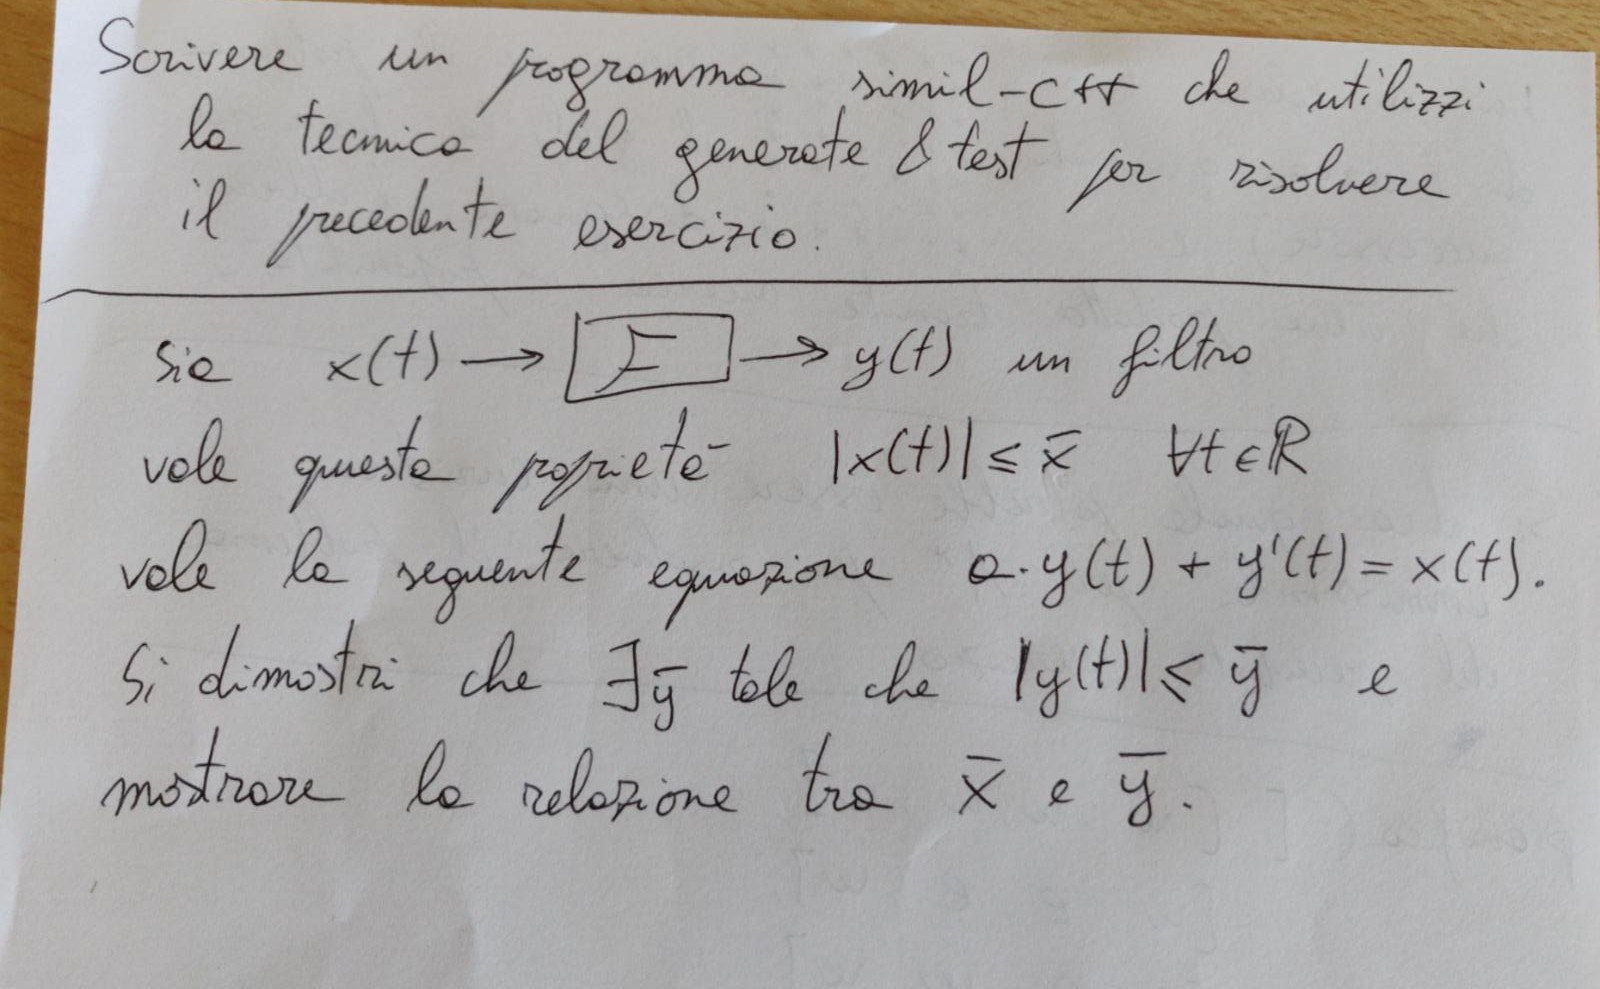 Scrivere un programma simil-C++ che utilizzi
la tecnica del generate & test per risolvere
il precedente esercizio.
Sia x(t) → F → y(t) un filtro
vale questa proprietà |x(t)| ≤ x̄ ∀t ∈ ℝ
vale la seguente equazione a·y(t) + y'(t) = x(t).
Si dimostri che ∃ȳ tale che |y(t)| ≤ ȳ e
mostrare la relazione tra x̄ e ȳ.